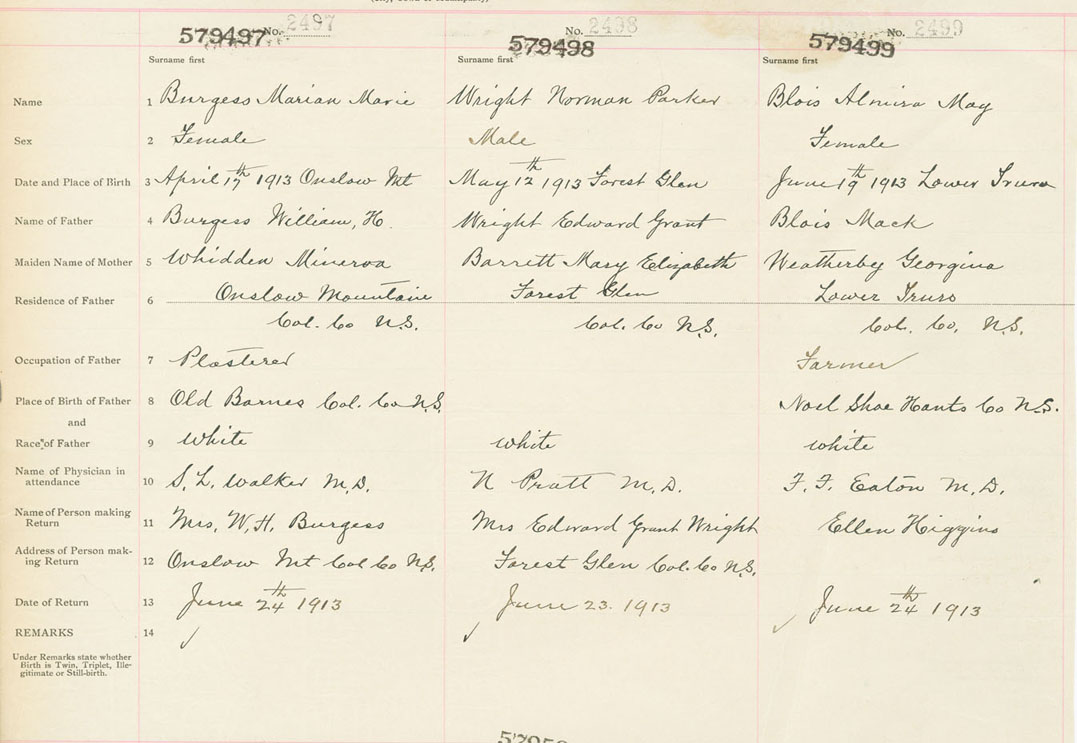 (City, Town or Municipality)
579497 No. 2497 579498 No. 2498 579499 No. 2499
Surname first Surname first Surname first
Name 1 Burgess Marian Marie Wright Norman Parker Blois Almira May
Sex 2 Female Male Female
Date and Place of Birth 3 April 17th 1913 Onslow Mt May 12th 1913 Forest Glen June 19th 1913 Lower Truro
Name of Father 4 Burgess William, H. Wright Edward Grant Blois Mack
Maiden Name of Mother 5 Whidden Minerva Barrett Mary Elizabeth Weatherby Georgina
Residence of Father 6 Onslow Mountain Forest Glen Lower Truro
Col. Co N.S. Col. Co N.S. Col. Co. N.S.
Occupation of Father 7 Plasterer Farmer
Place of Birth of Father 8 Old Barnes Col. Co N.S. Noel Shoe Hants Co N.S.
and
Race of Father 9 White White White
Name of Physician in
attendance 10 S. L. Walker M.D. N Pratt M.D. F. F. Eaton M.D.
Name of Person making
Return 11 Mrs. W. H. Burgess Mrs Edward Grant Wright Ellen Higgins
Address of Person mak-
ing Return 12 Onslow Mt Col Co N.S. Forest Glen Col. Co N.S.
Date of Return 13 June 24th 1913 June 23. 1913 June 24th 1913
REMARKS 14 ✓ ✓ ✓
Under Remarks state whether
Birth is Twin, Triplet, Ille-
gitimate or Still-birth.